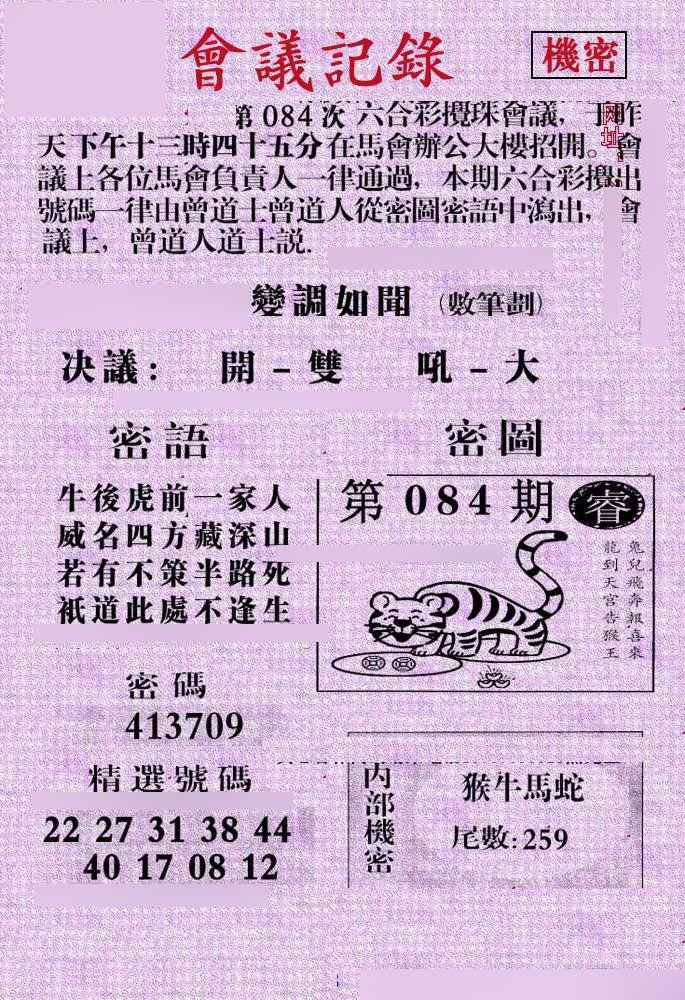 會議記錄
機密
第 084 次 六合彩攪珠會議，于昨
天下午十三時四十五分在馬會辦公大樓招開。會
議上各位馬會負責人一律通過，本期六合彩攪出
號碼一律由曾道士曾道人從密圖密語中瀉出，會
議上，曾道人道士説.
网址：
變調如聞（數筆劃）
决議： 開－雙 吼－大
密語
牛後虎前一家人
威名四方藏深山
若有不策半路死
祇道此處不逢生
密圖
第 084 期 睿
兔兒飛奔報喜來
龍到天宮告猴王
密碼
413709
精選號碼
22 27 31 38 44
40 17 08 12
内部機密
猴牛馬蛇
尾數:259